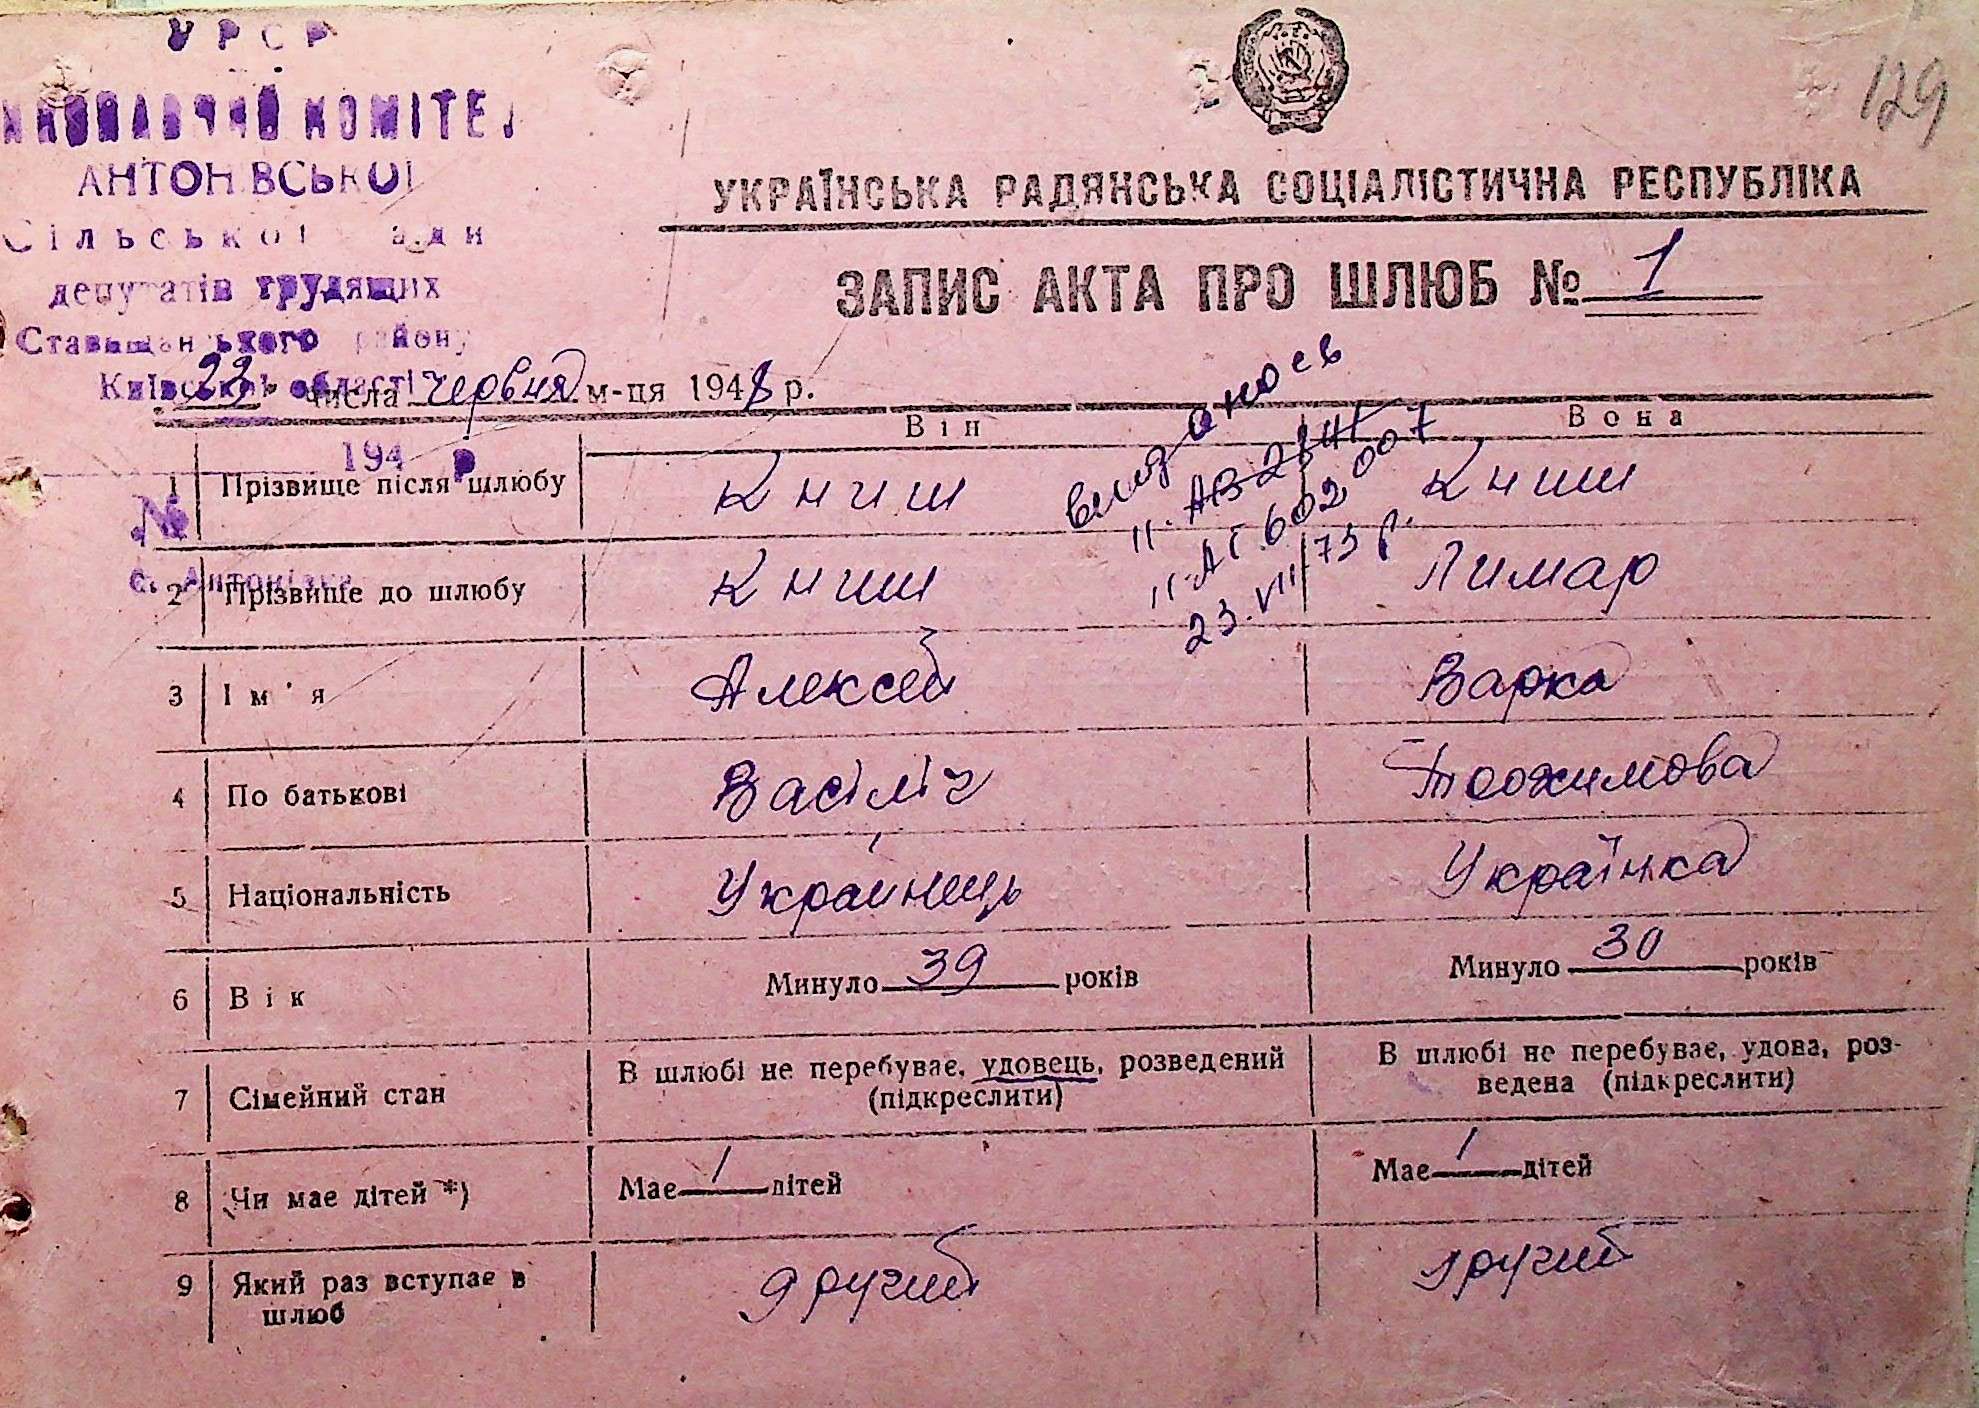 УРСР
ВИКОНАВЧИЙ КОМІТЕТ
АНТОНІВСЬКОЇ
Сільської Ради
депутатів трудящих
Ставищанського району
Київської області
194 р
№
с. Антонівка
129
УКРАЇНСЬКА РАДЯНСЬКА СОЦІАЛІСТИЧНА РЕСПУБЛІКА
ЗАПИС АКТА ПРО ШЛЮБ № 1
23 числа червня м-ця 1948 р.
Він Вона
11. АВ 2341
11-АГ 602007
23.VII-73 р.
1 Прізвище після шлюбу Книш Книш
2 Прізвище до шлюбу Книш Лимар
3 Ім'я Алексей Варка
4 По батькові Васіліч
5 Національність Украинець Українка
6 Вік Минуло 39 років Минуло 30 років
7 Сімейний стан В шлюбі не перебуває, удовець, розведений (підкреслити) В шлюбі не перебуває, удова, роз-
ведена (підкреслити)
8 Чи має дітей *) Має 1 дітей Має 1 дітей
9 Який раз вступає в шлюб другий другий